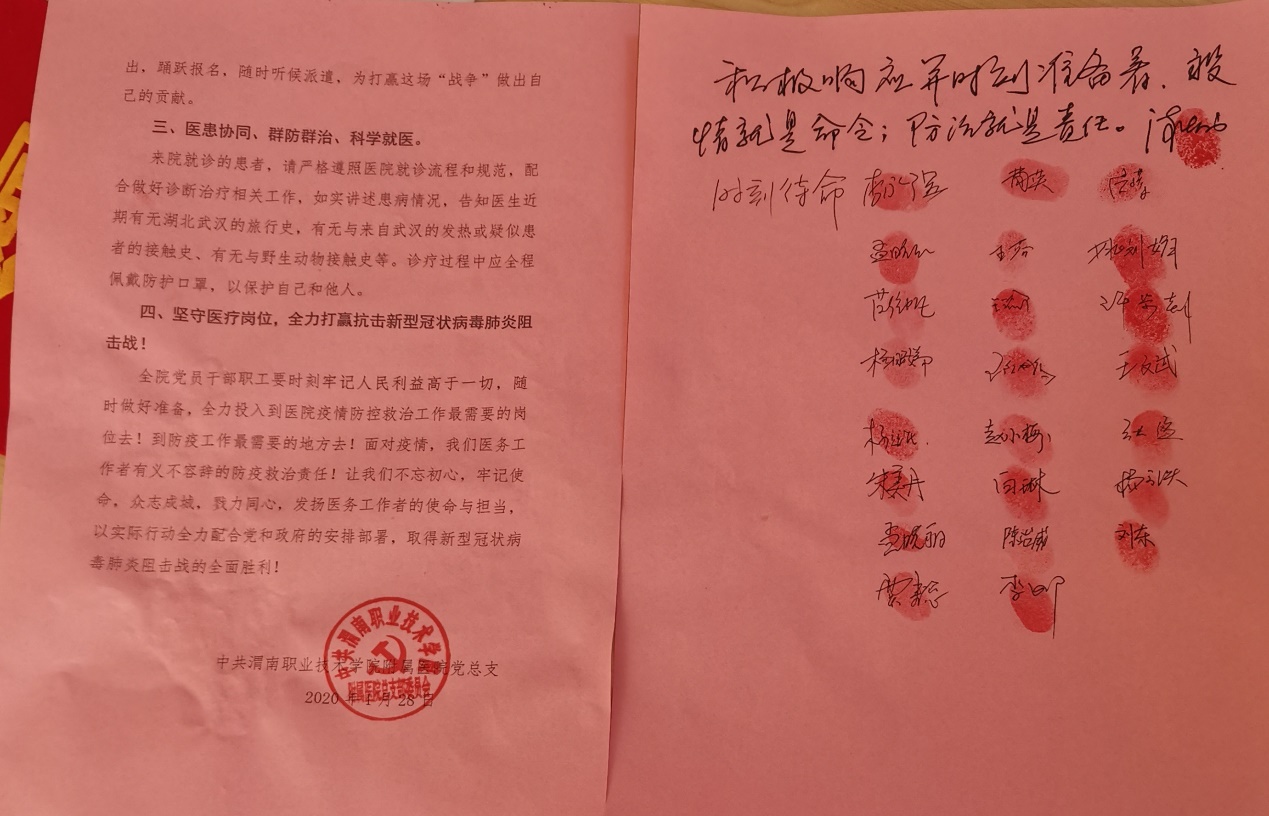 出，踊跃报名，随时听候派遣，为打赢这场“战争”做出自
己的贡献。
三、医患协同、群防群治、科学就医。
来院就诊的患者，请严格遵照医院就诊流程和规范，配
合做好诊断治疗相关工作，如实讲述患病情况，告知医生近
期有无湖北武汉的旅行史，有无与来自武汉的发热或疑似患
者的接触史、有无与野生动物接触史等。诊疗过程中应全程
佩戴防护口罩，以保护自己和他人。
四、坚守医疗岗位，全力打赢抗击新型冠状病毒肺炎阻
击战！
全院党员干部职工要时刻牢记人民利益高于一切，随
时做好准备，全力投入到医院疫情防控救治工作最需要的岗
位去！到防疫工作最需要的地方去！面对疫情，我们医务工
作者有义不容辞的防疫救治责任！让我们不忘初心，牢记使
命，众志成城，戮力同心，发扬医务工作者的使命与担当，
以实际行动全力配合党和政府的安排部署，取得新型冠状病
毒肺炎阻击战的全面胜利！
中共渭南职业技术学院附属医院党总支
2020 年 1 月 28 日
中共渭南职业技术学
附属医院总支部委员会
积极响应并时刻准备着，疫
情就是命令；防治就是责任。
时刻待命
王文武
赵小梅
宋柔丹
孟晓丽
刘东